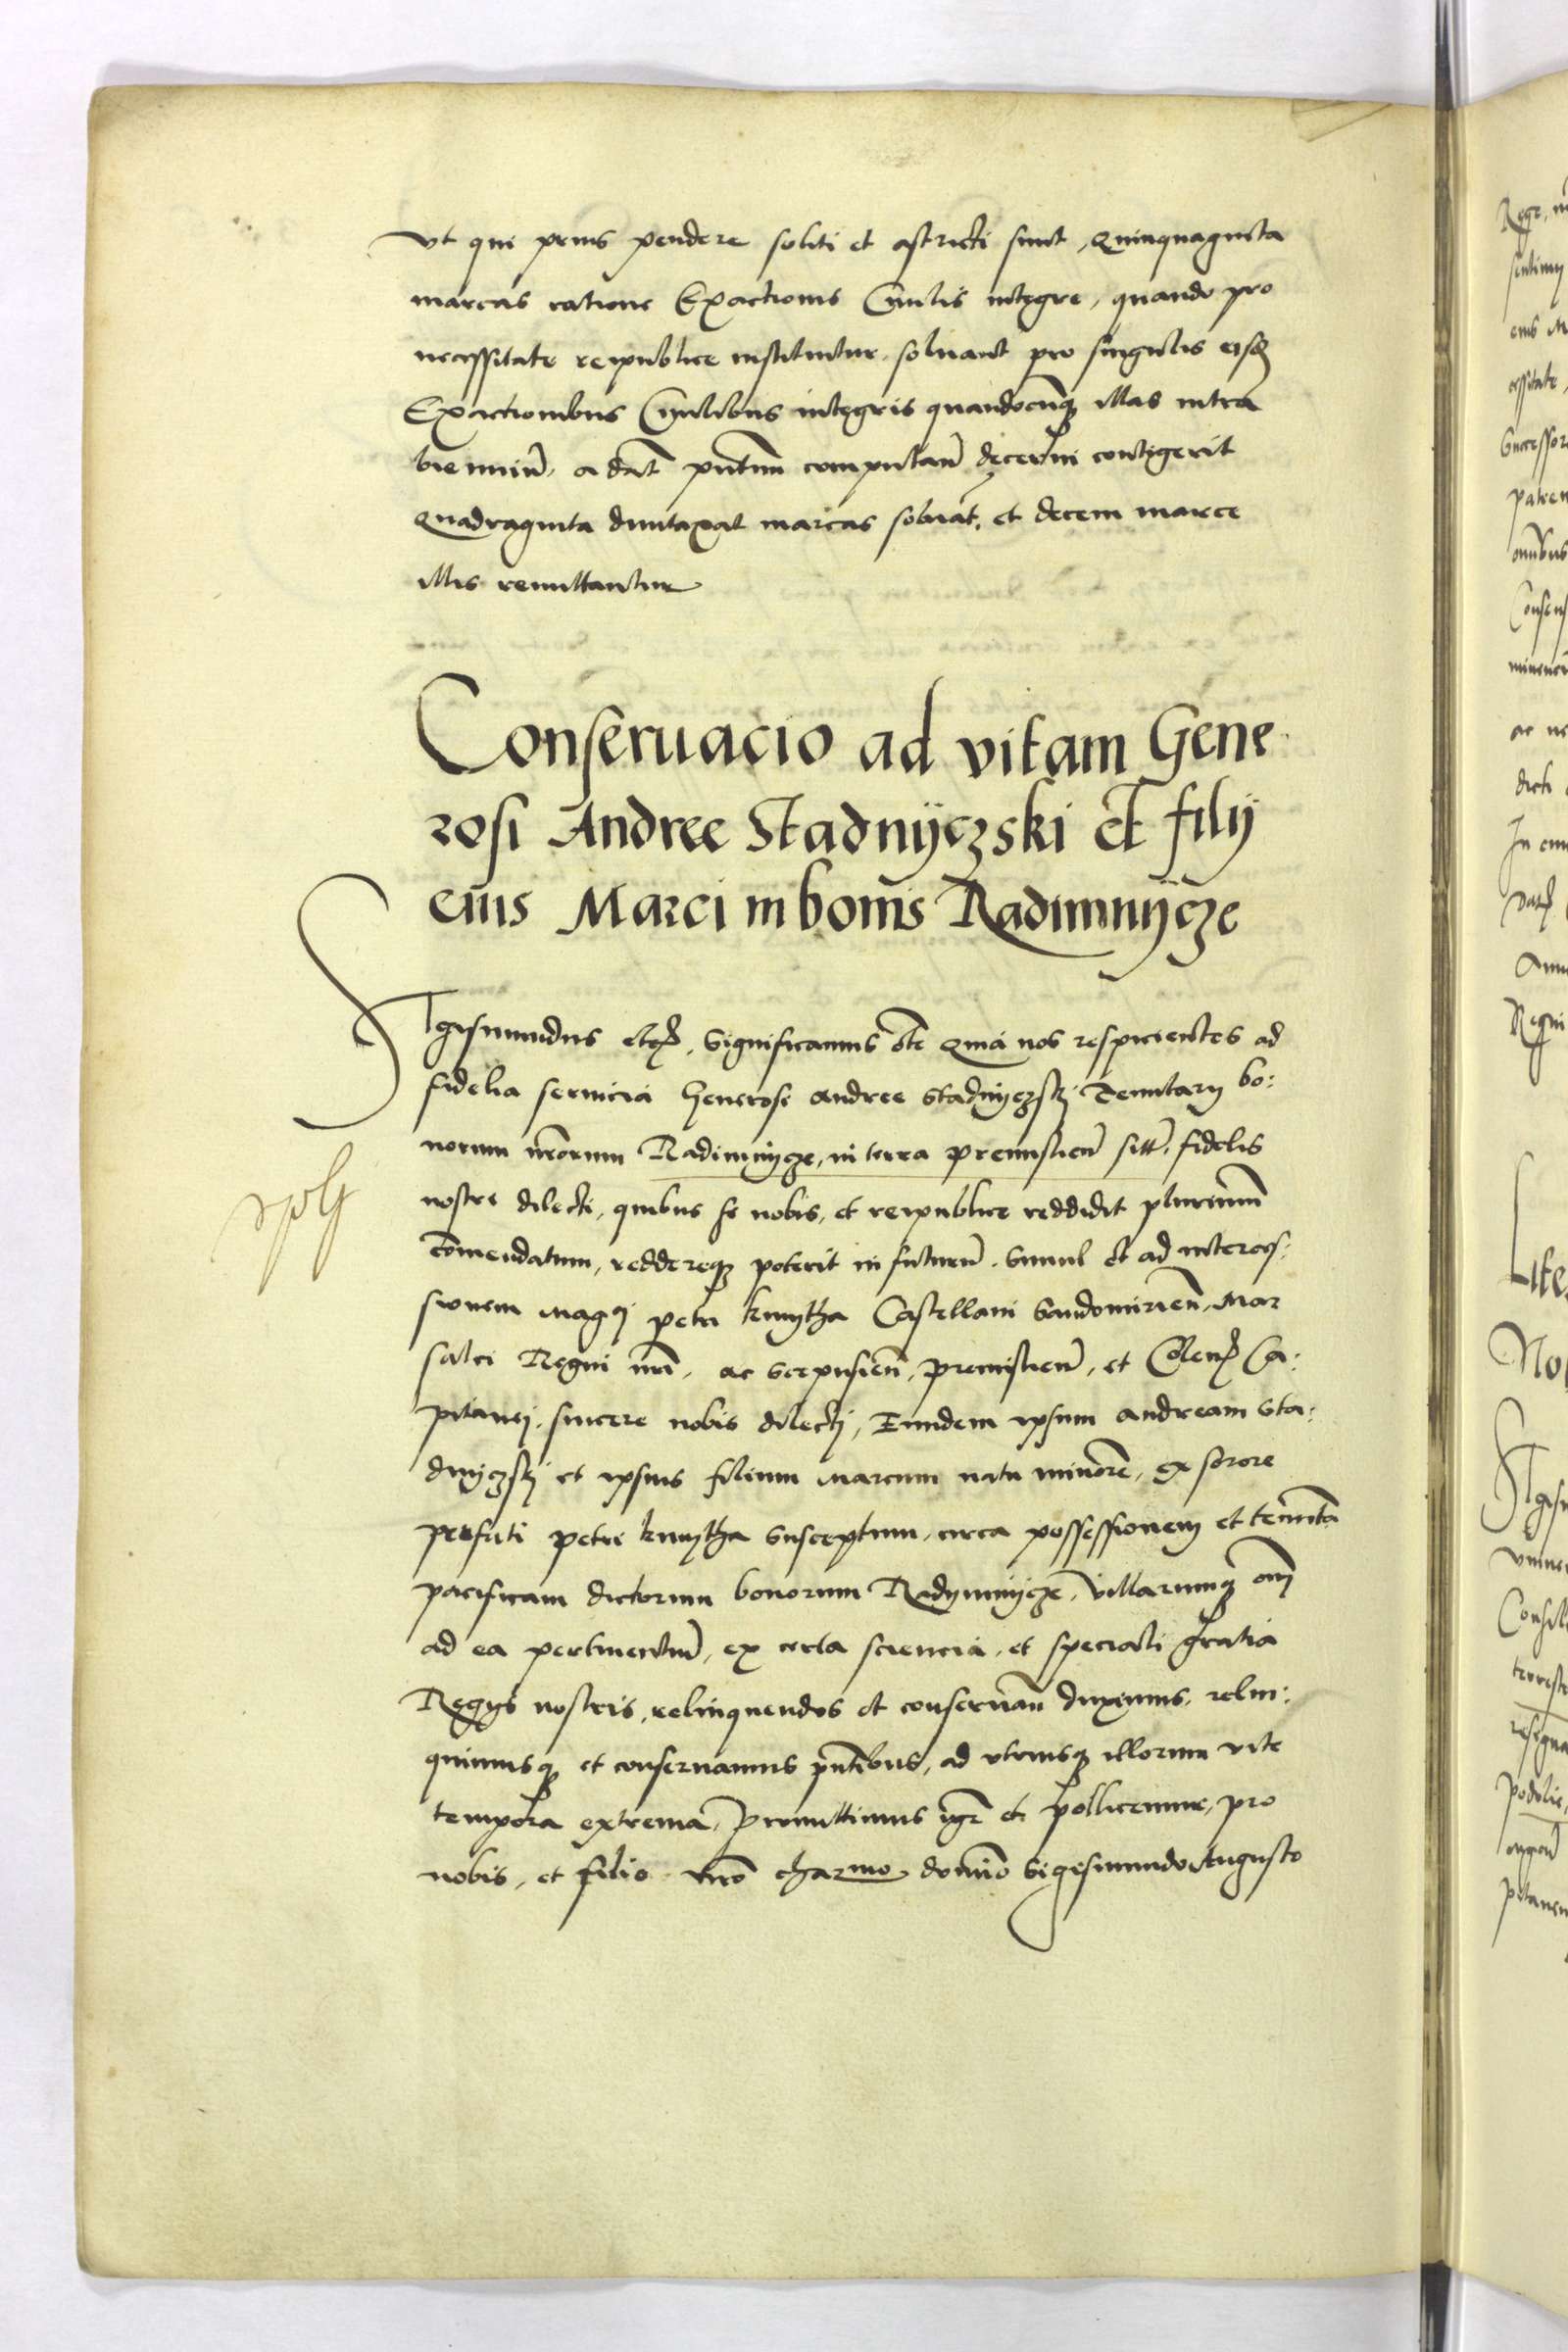 Vt qui prius pendere soliti et astricti sunt, Quinquaginta
marcas ratione Exactionis Ciuilis integre, quando pro
necessitate reipublice instituitur soluant pro singulis eisd
Exactionibus Ciuilibus integris quandocunq illas intra
biennium, a dat pntium computan decerni contigerit
Quadraginta duntaxat marcas soluat, et decem marce
illis remittantur
Conseruacio ad vitam Gene
rosi Andree Stadnyczski et filij
eius Marci in bonis Radimnycze
Sigismundus etc. Significamus etc Quia nos respicientes ad
fidelia seruicia Generosi Andree Stadnyczski Tenutarij bo:
norum nrorum Radimnycze, in terra premislien sitt, fidelis
nostri dilecti, quibus se nobis, et reipublice reddidit plurimum
comendatum, reddereq poterit in futurum. Simul et ad interces:
sionem magci petri kmytha Castellani Sandomirien, Mar
salci Regni nri, ac Scepusien, premislien, et Colen Ca:
pitanei, sincere nobis dilecti, Eundem ipsum andream Sta:
dnyczski et ipsius filium Marcum natu minore, ex sorore
prefati petri kmytha Susceptum, circa possessionem et tenuta
pacificam dictorum bonorum Radymnycze, villarumq om
ad ea pertinentium, ex certa sciencia, et speciali gratia
Regys nostris, relinquendos et conseruan duximus, relin:
quimusq et conseruamus pntibus, ad vtriusq illorum vite
tempora extrema, Promittimus igr et pollicemur, pro
nobis, et filio nro charmo domino Sigismundo Augusto